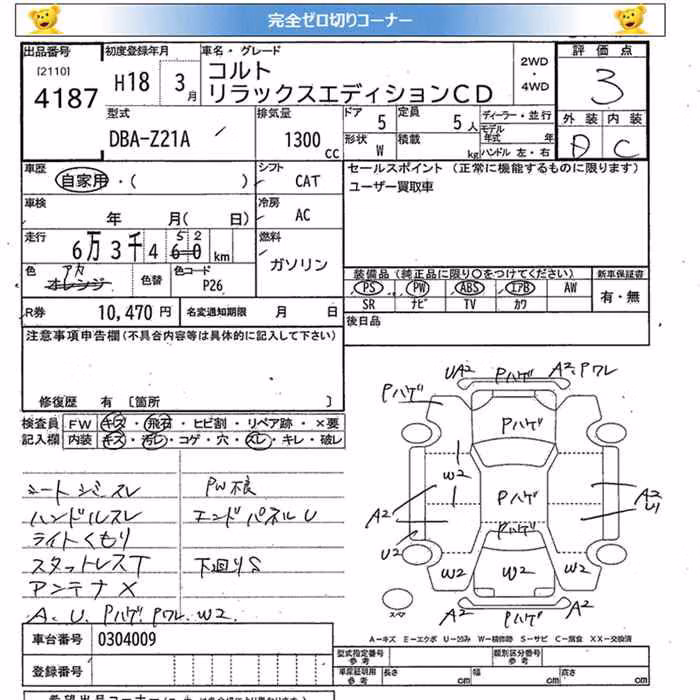 完全ゼロ切りコーナー
出品番号 初度登録年月 車名・グレード 評価点
[2110]
4187 H18 3月
コルト
リラックスエディションCD
2WD・4WD
3
型式 排気量 ドア 定員 ディーラー・並行 外装 内装
DBA-Z21A 1300cc 5 5人 モデル年式 年
形状 積載
W kg ハンドル 左・右
C
車歴 シフト セールスポイント (正常に機能するものに限ります)
自家用・( ) CAT ユーザー買取車
車検 冷房
年 月( 日) AC
走行 燃料
5 2
6万3千4 60 km ガソリン
色 アカ 色替 色コード
オレンジ P26
装備品 (純正品に限り○をつけてください) 新車保証書
PS PW ABS エアB AW 有・無
SR ナビ TV カワ
R券 10,470円 名変通知期限 月 日
後日品
注意事項申告欄(不具合内容等は具体的に記入して下さい)
修復歴 有 〔箇所 〕
検査員 FW キズ・飛石・ヒビ割・リペア跡・×要
記入欄 内装 キズ・汚レ・コゲ・穴・スレ・キレ・破レ
シートシミスレ PW不良
ハンドルスレ エンドパネルU
ライトくもり
スタットレスT 下廻りS
アンテナX
A、U、Pハゲ、Pワレ、W2、
UA2 Pハゲ A2、Pワレ
Pハゲ
Pハゲ
W2
Pハゲ
A2 A2
U1
Pハゲ
U2
W2 W2 W2
スペア A2 Pハゲ A2
A−キズ E−エクボ U−凹み W−補修跡 S−サビ C−腐食 XX−交換済
車台番号 0304009
登録番号
型式指定番号 参考 類別区分番号 参考
車庫証明用 参考 長さ cm 幅 cm 高さ cm